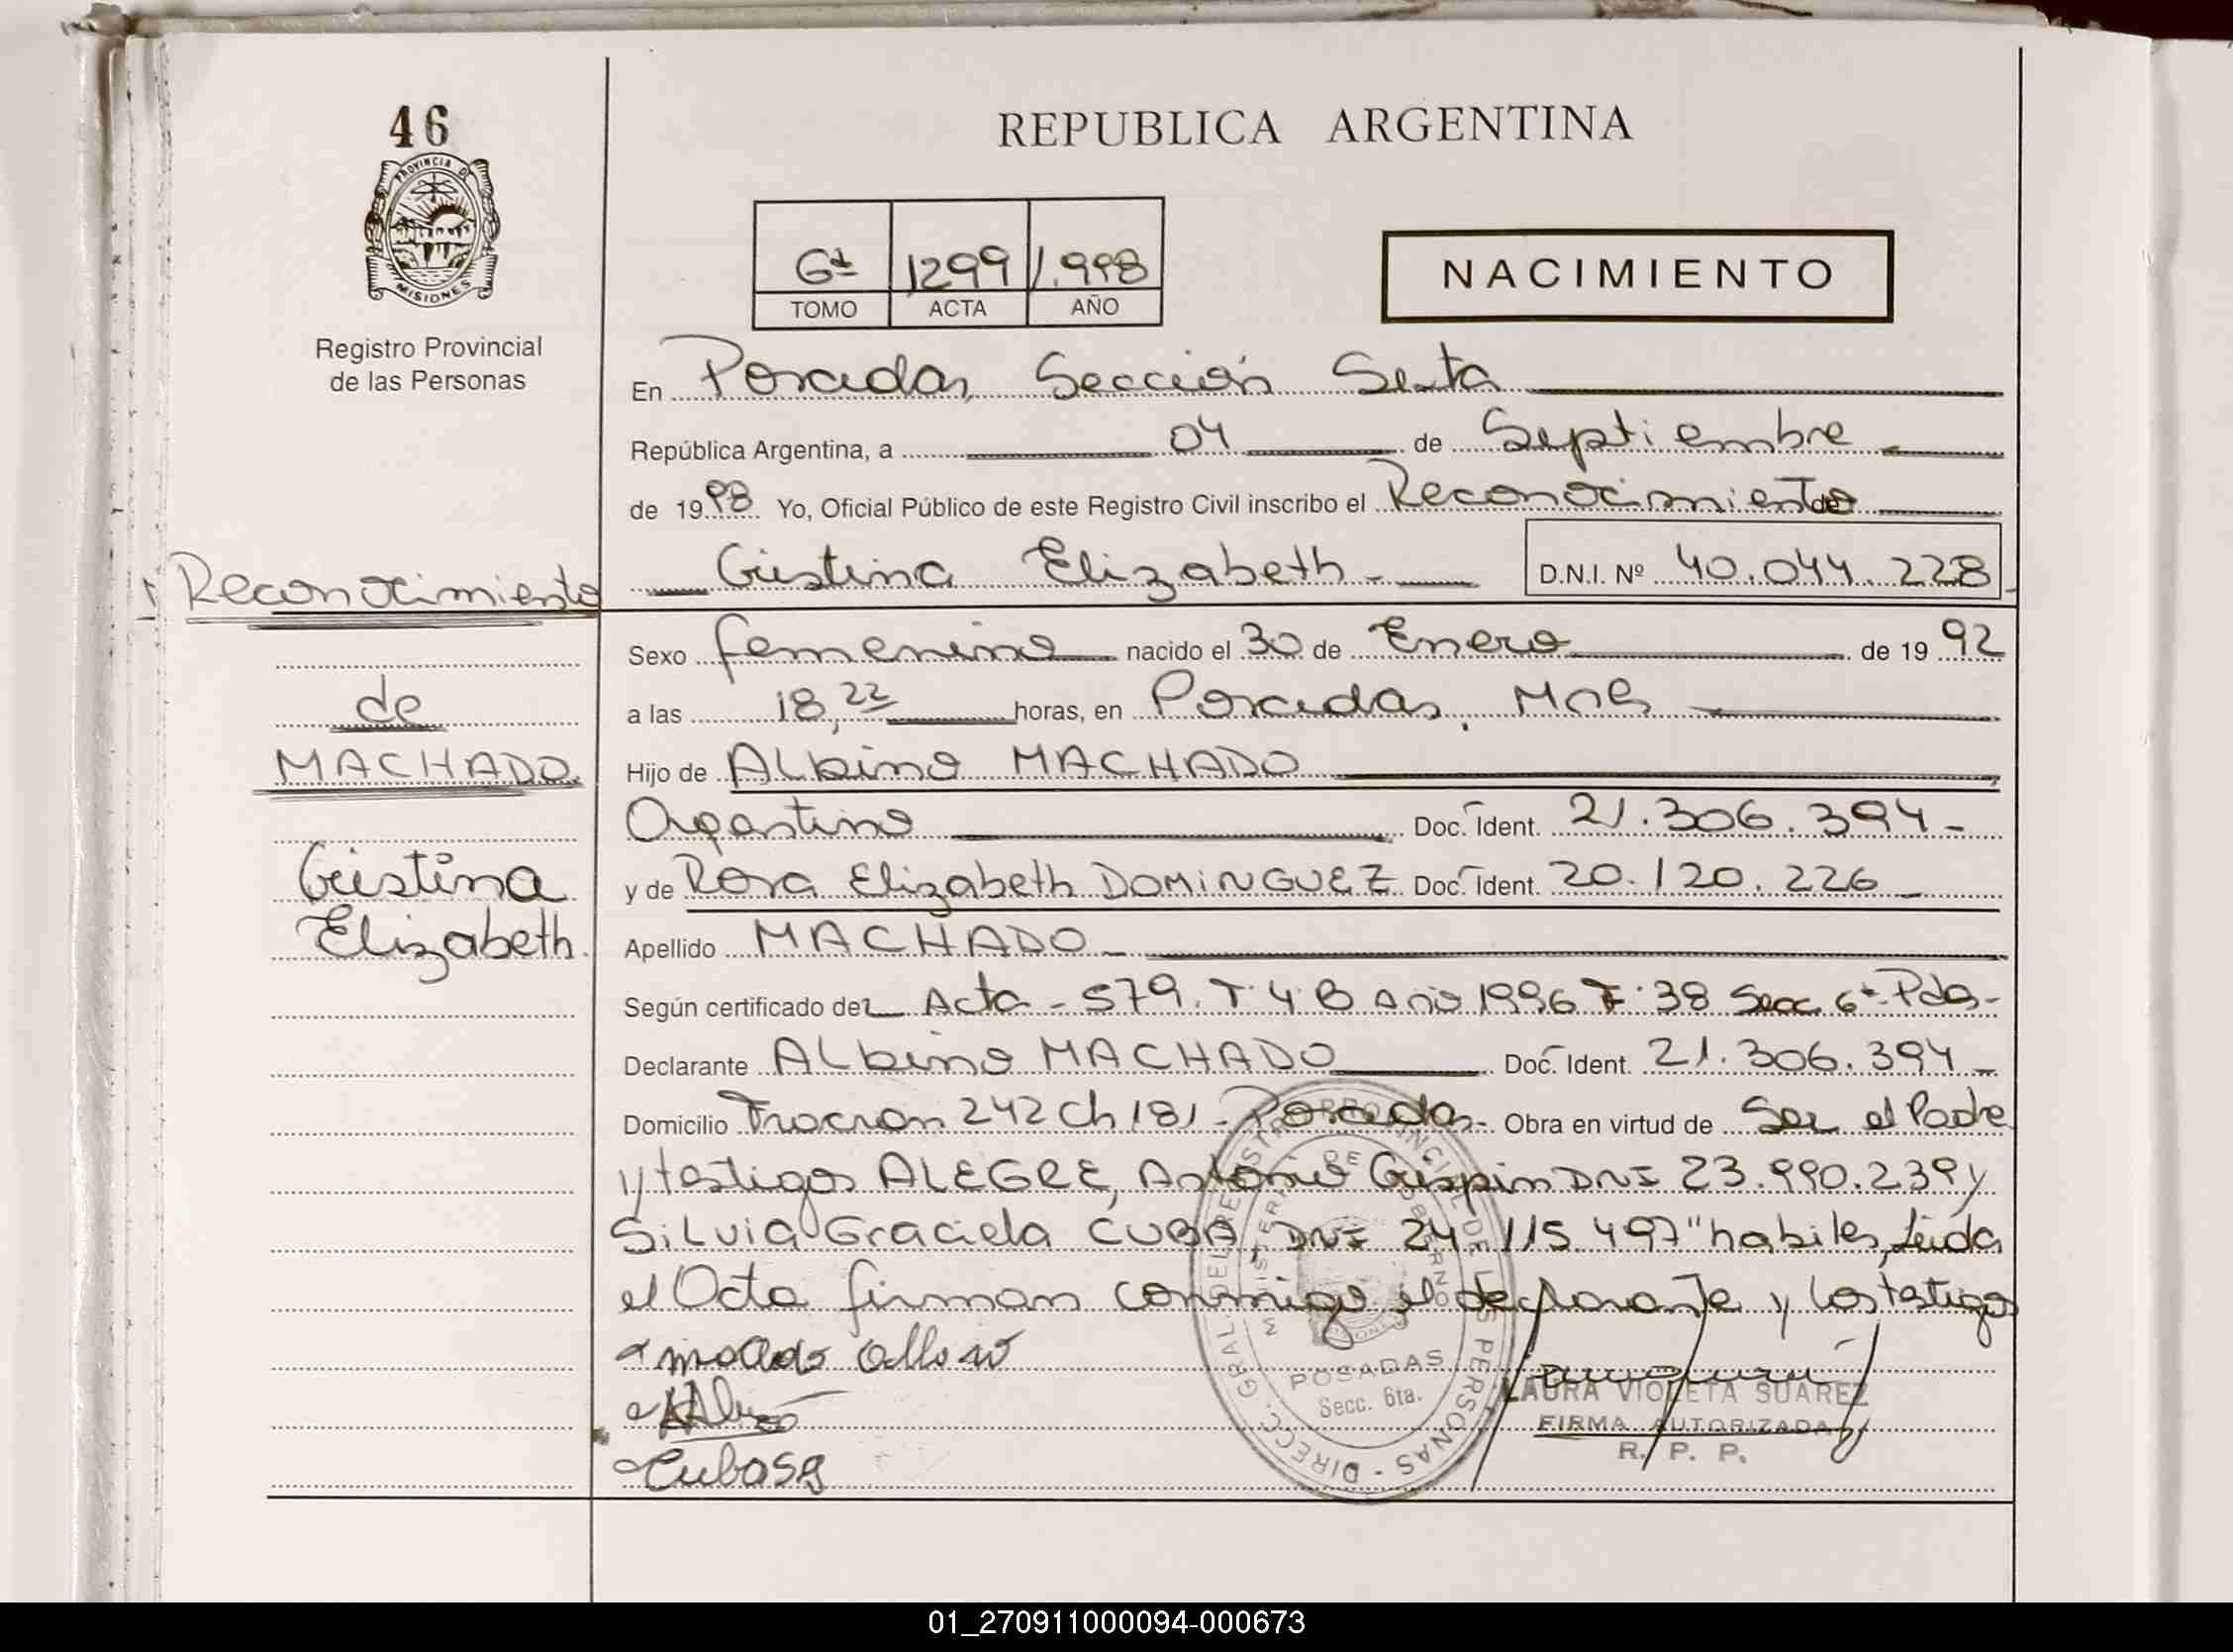 46
PROVINCIA DE
MISIONES
Registro Provincial
de las Personas
REPUBLICA ARGENTINA
6ª 1299 1.998
TOMO ACTA AÑO
NACIMIENTO
En Posadas, Sección Sexta
República Argentina, a 04 de Septiembre
de 1998 Yo, Oficial Público de este Registro Civil inscribo el Reconocimiento de
Cristina Elizabeth - D.N.I. Nº 40.044.228
Reconocimiento
de
MACHADO
Cristina
Elizabeth.
Sexo femenino nacido el 30 de Enero de 1992
a las 18,22 horas, en Posadas, Mnes
Hijo de Albino MACHADO
Argentino Doc. Ident. 21.306.394-
y de Rosa Elizabeth DOMINGUEZ Doc. Ident. 20.120.226-
Apellido MACHADO-
Según certificado del Acta - 579. T. 4. B Año 1996 F. 38 Secc. 6ª Pdas-
Declarante Albino MACHADO Doc. Ident. 21.306.394-
Domicilio 242 Ch 181 - Posadas- Obra en virtud de Ser el Padre
y testigos ALEGRE, Antonio Crispin DNI 23.990.239 y
Silvia Graciela CUBA, DNI 24.115.497 "habiles, Leida
el Acta firman conmigo el declarante y los testigos
Cubasg
POSADAS
Secc. 6ta.
DIRECC. GRAL. DEL REGISTRO PROVINCIAL DE LAS PERSONAS -
MINISTERIO DE GOBIERNO
LAURA VIOLETA SUAREZ
FIRMA AUTORIZADA
R. P. P.
01_270911000094-000673